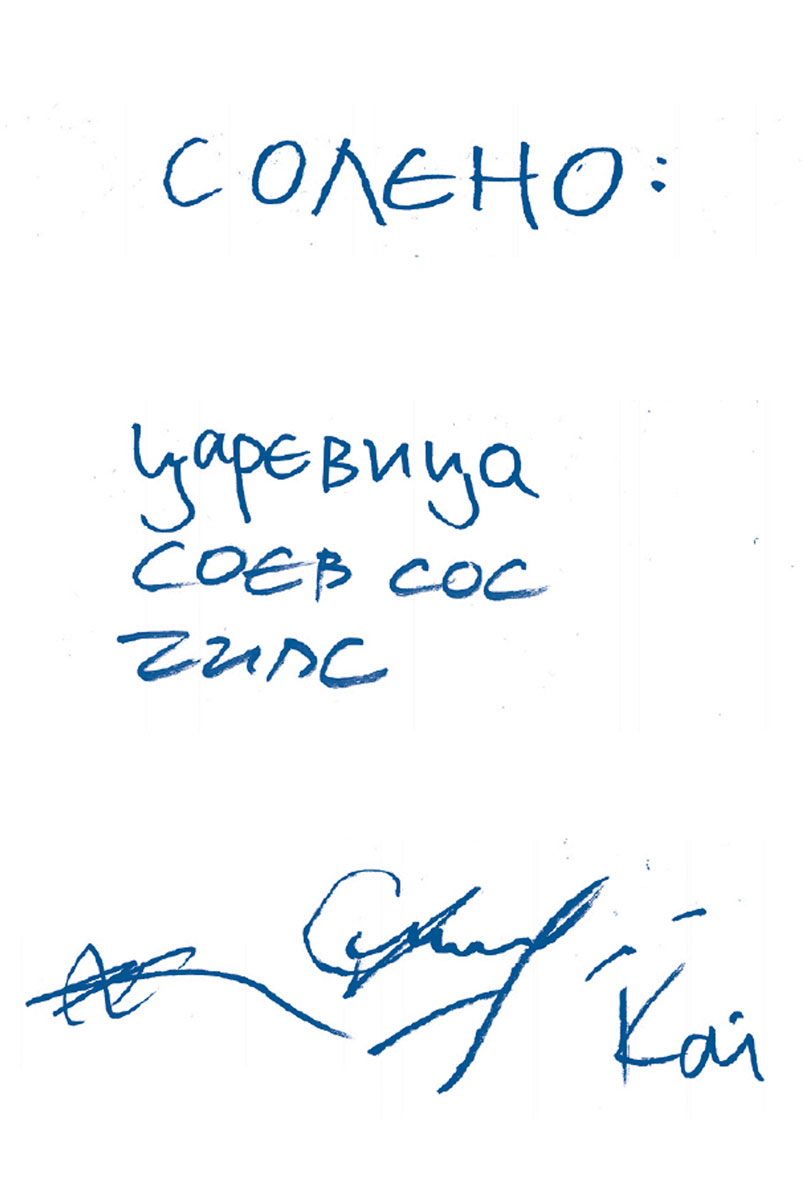 СОЛЕНО:
царевица
соев сос
чипс
Kai